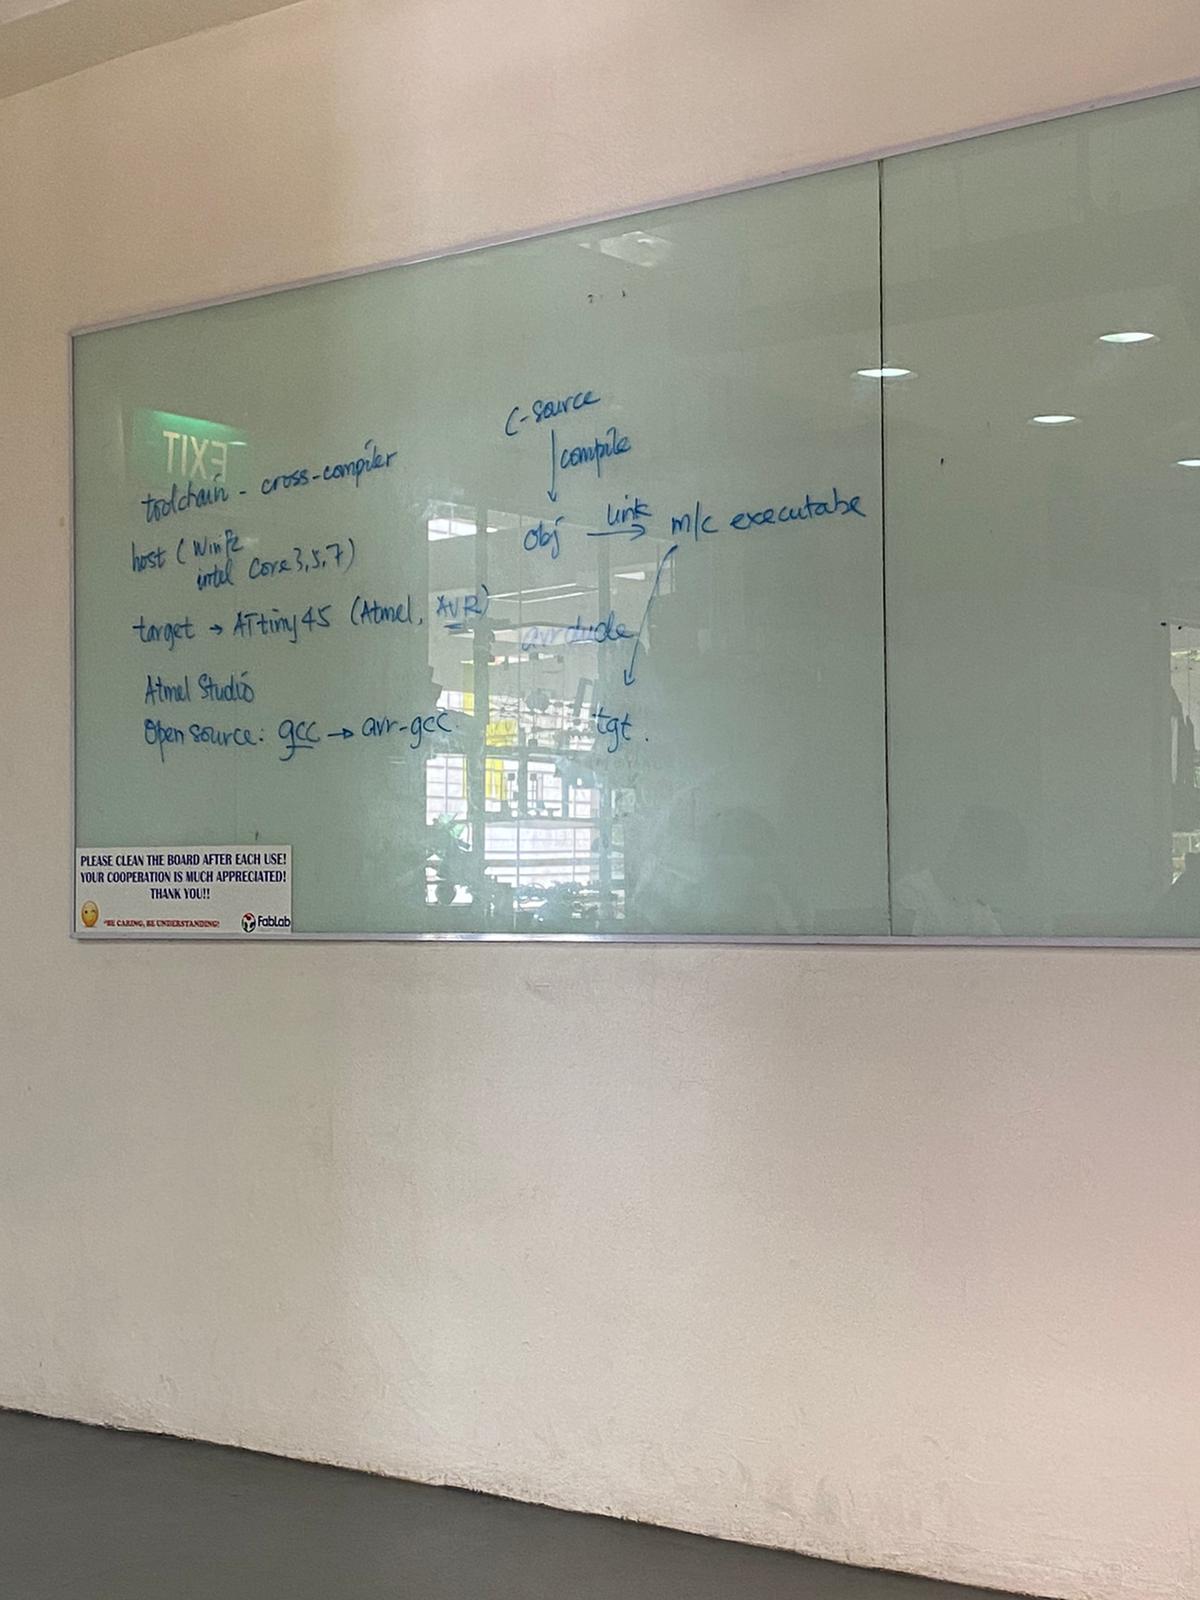 EXIT
toolchain - cross-compiler
host (
intel Core 3, 5, 7)
target → ATtiny45 (Atmel, AVR)
Atmel Studio
Open source: gcc → avr-gcc
C-source
compile
obj
link
m/c executabe
avrdude
tgt.
PLEASE CLEAN THE BOARD AFTER EACH USE!
YOUR COOPERATION IS MUCH APPRECIATED!
THANK YOU!!
"BE CARING, BE UNDERSTANDING!
FabLab